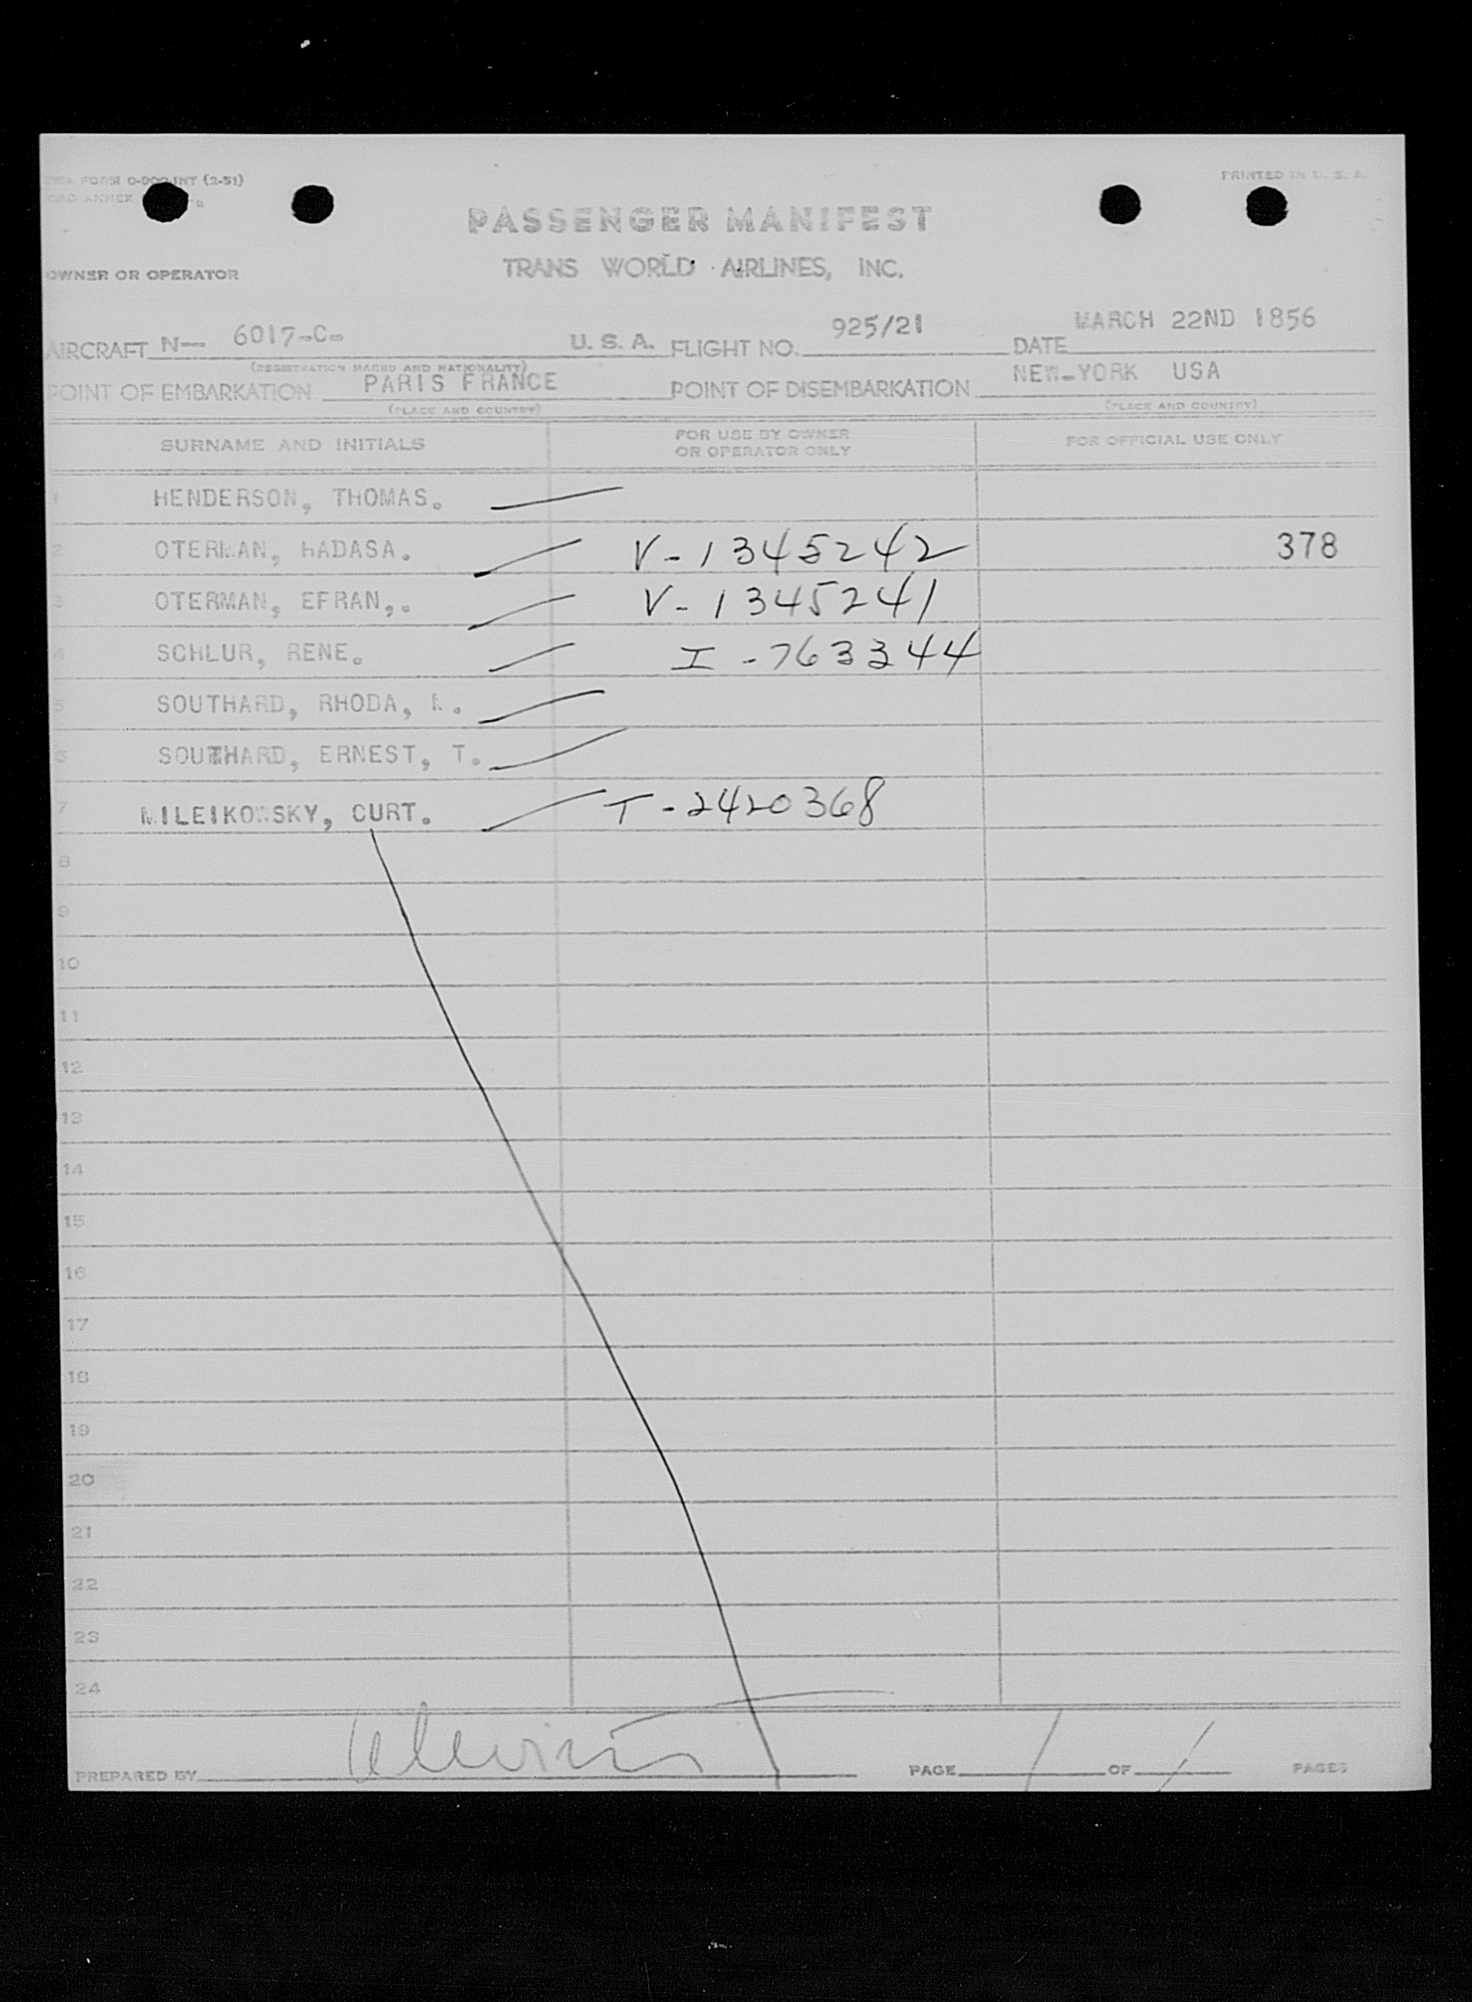 FORM O-900-INT (2-51)
PRINTED IN U. S. A.
ANNEX
PASSENGER MANIFEST
OWNER OR OPERATOR TRANS WORLD AIRLINES, INC.
AIRCRAFT N— 6017-C- U. S. A. FLIGHT NO. 925/21 DATE MARCH 22ND 1856
(REGISTRATION MARKS AND NATIONALITY)
POINT OF EMBARKATION PARIS FRANCE POINT OF DISEMBARKATION NEW-YORK USA
(PLACE AND COUNTRY) (PLACE AND COUNTRY)
SURNAME AND INITIALS FOR USE BY OWNER OR OPERATOR ONLY FOR OFFICIAL USE ONLY
1 HENDERSON, THOMAS.
2 OTERMAN, HADASA. V-1345242 378
3 OTERMAN, EFRAN,. V-1345241
4 SCHLUR, RENE. I-763344
5 SOUTHARD, RHODA,
6 SOUTHARD, ERNEST, T.
7 MILEIKOWSKY, CURT. T-2420368
8
9
10
11
12
13
14
15
16
17
18
19
20
21
22
23
24
PREPARED BY PAGE 1 OF 1 PAGES